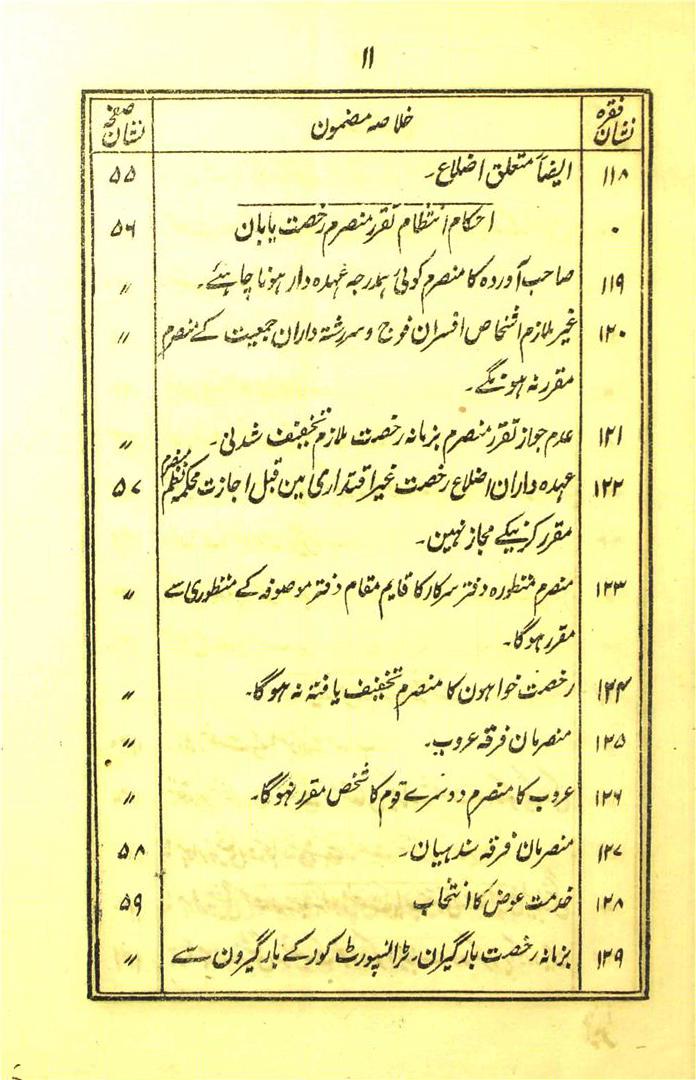 ۱۱
نشان فقرہ خلاصہ مضمون نشان صفحہ
۱۱۸ ایضاً متعلق اضلاع۔ ۵۵
۰ احکام انتظام تقرر منصرم رخصت یابان ۵۶
۱۱۹ صاحب آوردہ کا منصرم کوئی ہمدرجہ عہدہ دار ہونا چاہئے۔ 〃
۱۲۰ غیر ملازم اشخاص افسران فوج و سررشتہ داران جمعیت کے منصرم 〃
مقرر نہ ہونگے۔
۱۲۱ عدم جواز تقرر منصرم بزمانہ رخصت ملازم تخفیف شدنی۔ 〃
۱۲۲ عہدہ داران اضلاع رخصت غیر اقتداری مین قبل اجازت محکمہ نظم منصرم ۵۷
مقرر کرنیکے مجاز نہین۔
۱۲۳ منصرم منظورہ دفتر سرکار کا قایم مقام دفتر موصوفہ کے منظوری سے 〃
مقرر ہوگا۔
۱۲۴ رخصت خواہون کا منصرم تخفیف یافتہ نہ ہوگا۔ 〃
۱۲۵ منصرمان فرقہ عروب۔ 〃
۱۲۶ عروب کا منصرم دوسرے قوم کا شخص مقرر نہوگا۔ 〃
۱۲۷ منصرمان فرقہ سندہیان۔ ۵۸
۱۲۸ خدمت عوض کا انتخاب ۵۹
۱۲۹ بزمانہ رخصت بارگیران۔ ٹرانسپورٹ کور کے بارگیرون سے 〃